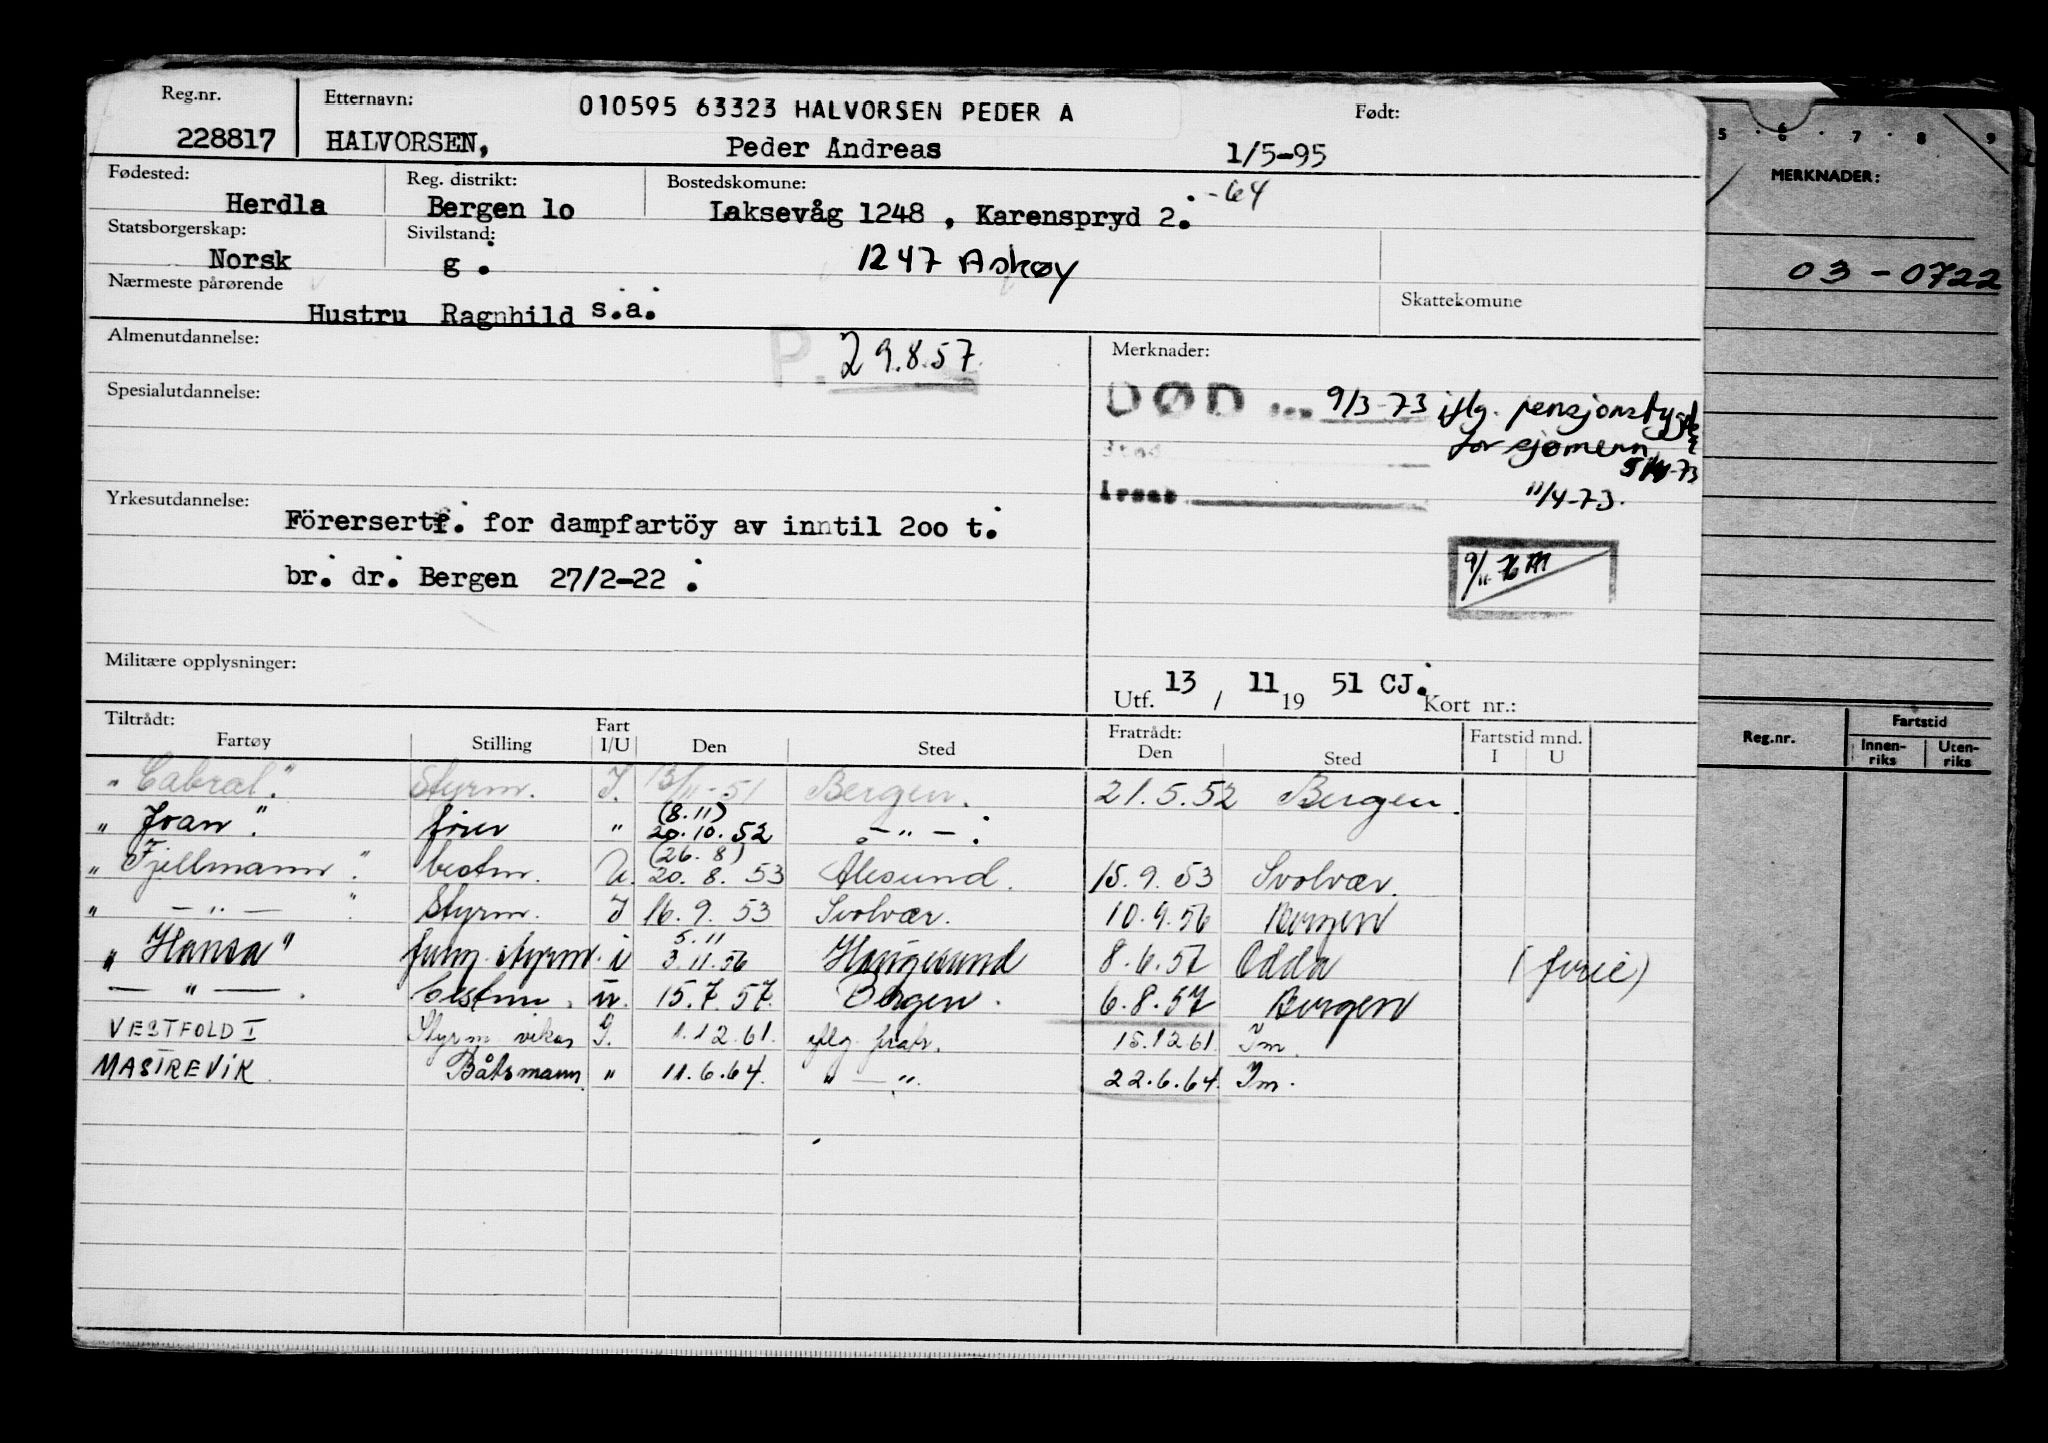 Reg.nr. Etternavn: 010595 63323 HALVORSEN PEDER A Født:
228817 HALVORSEN, Peder Andreas 1/5-95
Fødested: Reg. distrikt: Bostedskomune: -64
Herdla Bergen lo Laksevåg 1248 , Karenspryd 2.
Statsborgerskap: Sivilstand:
Norsk g. 1247 Askøy
Nærmeste pårørende Skattekomune
Hustru Ragnhild s.a.
Almenutdannelse: P. 29.8.57. Merknader:
DØD den 9/3-73 iflg. pensjonstrygden
Spesialutdannelse:
Sted for sjømenn
5/4-73
Årsak 11/4-73.
Yrkesutdannelse:
Förersertf. for dampfartöy av inntil 2oo t.
br. dr. Bergen 27/2-22 .
9/11-76
Militære opplysninger:
Utf. 13 / 11 19 51 CJ. Kort nr.:
Tiltrådt: Fart Fratrådt: Fartstid mnd.
Fartøy Stilling I/U Den Sted Den Sted I U
"Cabral." Styrm. I. 13/11-51 Bergen. 21.5.52 Bergen.
(8.11)
"Joan". fører " 20.10.52 — " — .
(26.8)
"Fjellmann". bestm. U. 20.8.53 Ålesund. 15.9.53 Svolvær.
" — " — ". Styrm. I 16.9.53 Svolvær. 10.9.56 Bergen
5.11
"Hansa" fung. styrm. i 3.11.56 Haugesund 8.6.57 Odda (ferie)
— " — . Bestm. u. 15.7.57 Bergen. 6.8.57 Bergen
VESTFOLD I Styrm vikar I. 1.12.61 iflg. fratr. 15.12.61. Im.
MASTREVIK Båtsmann " 11.6.64. " — ". 22.6.64. Im.
5 · 6 · 7 · 8 · 9
MERKNADER:
03-0722
Reg.nr. Fartstid
Innenriks Utenriks